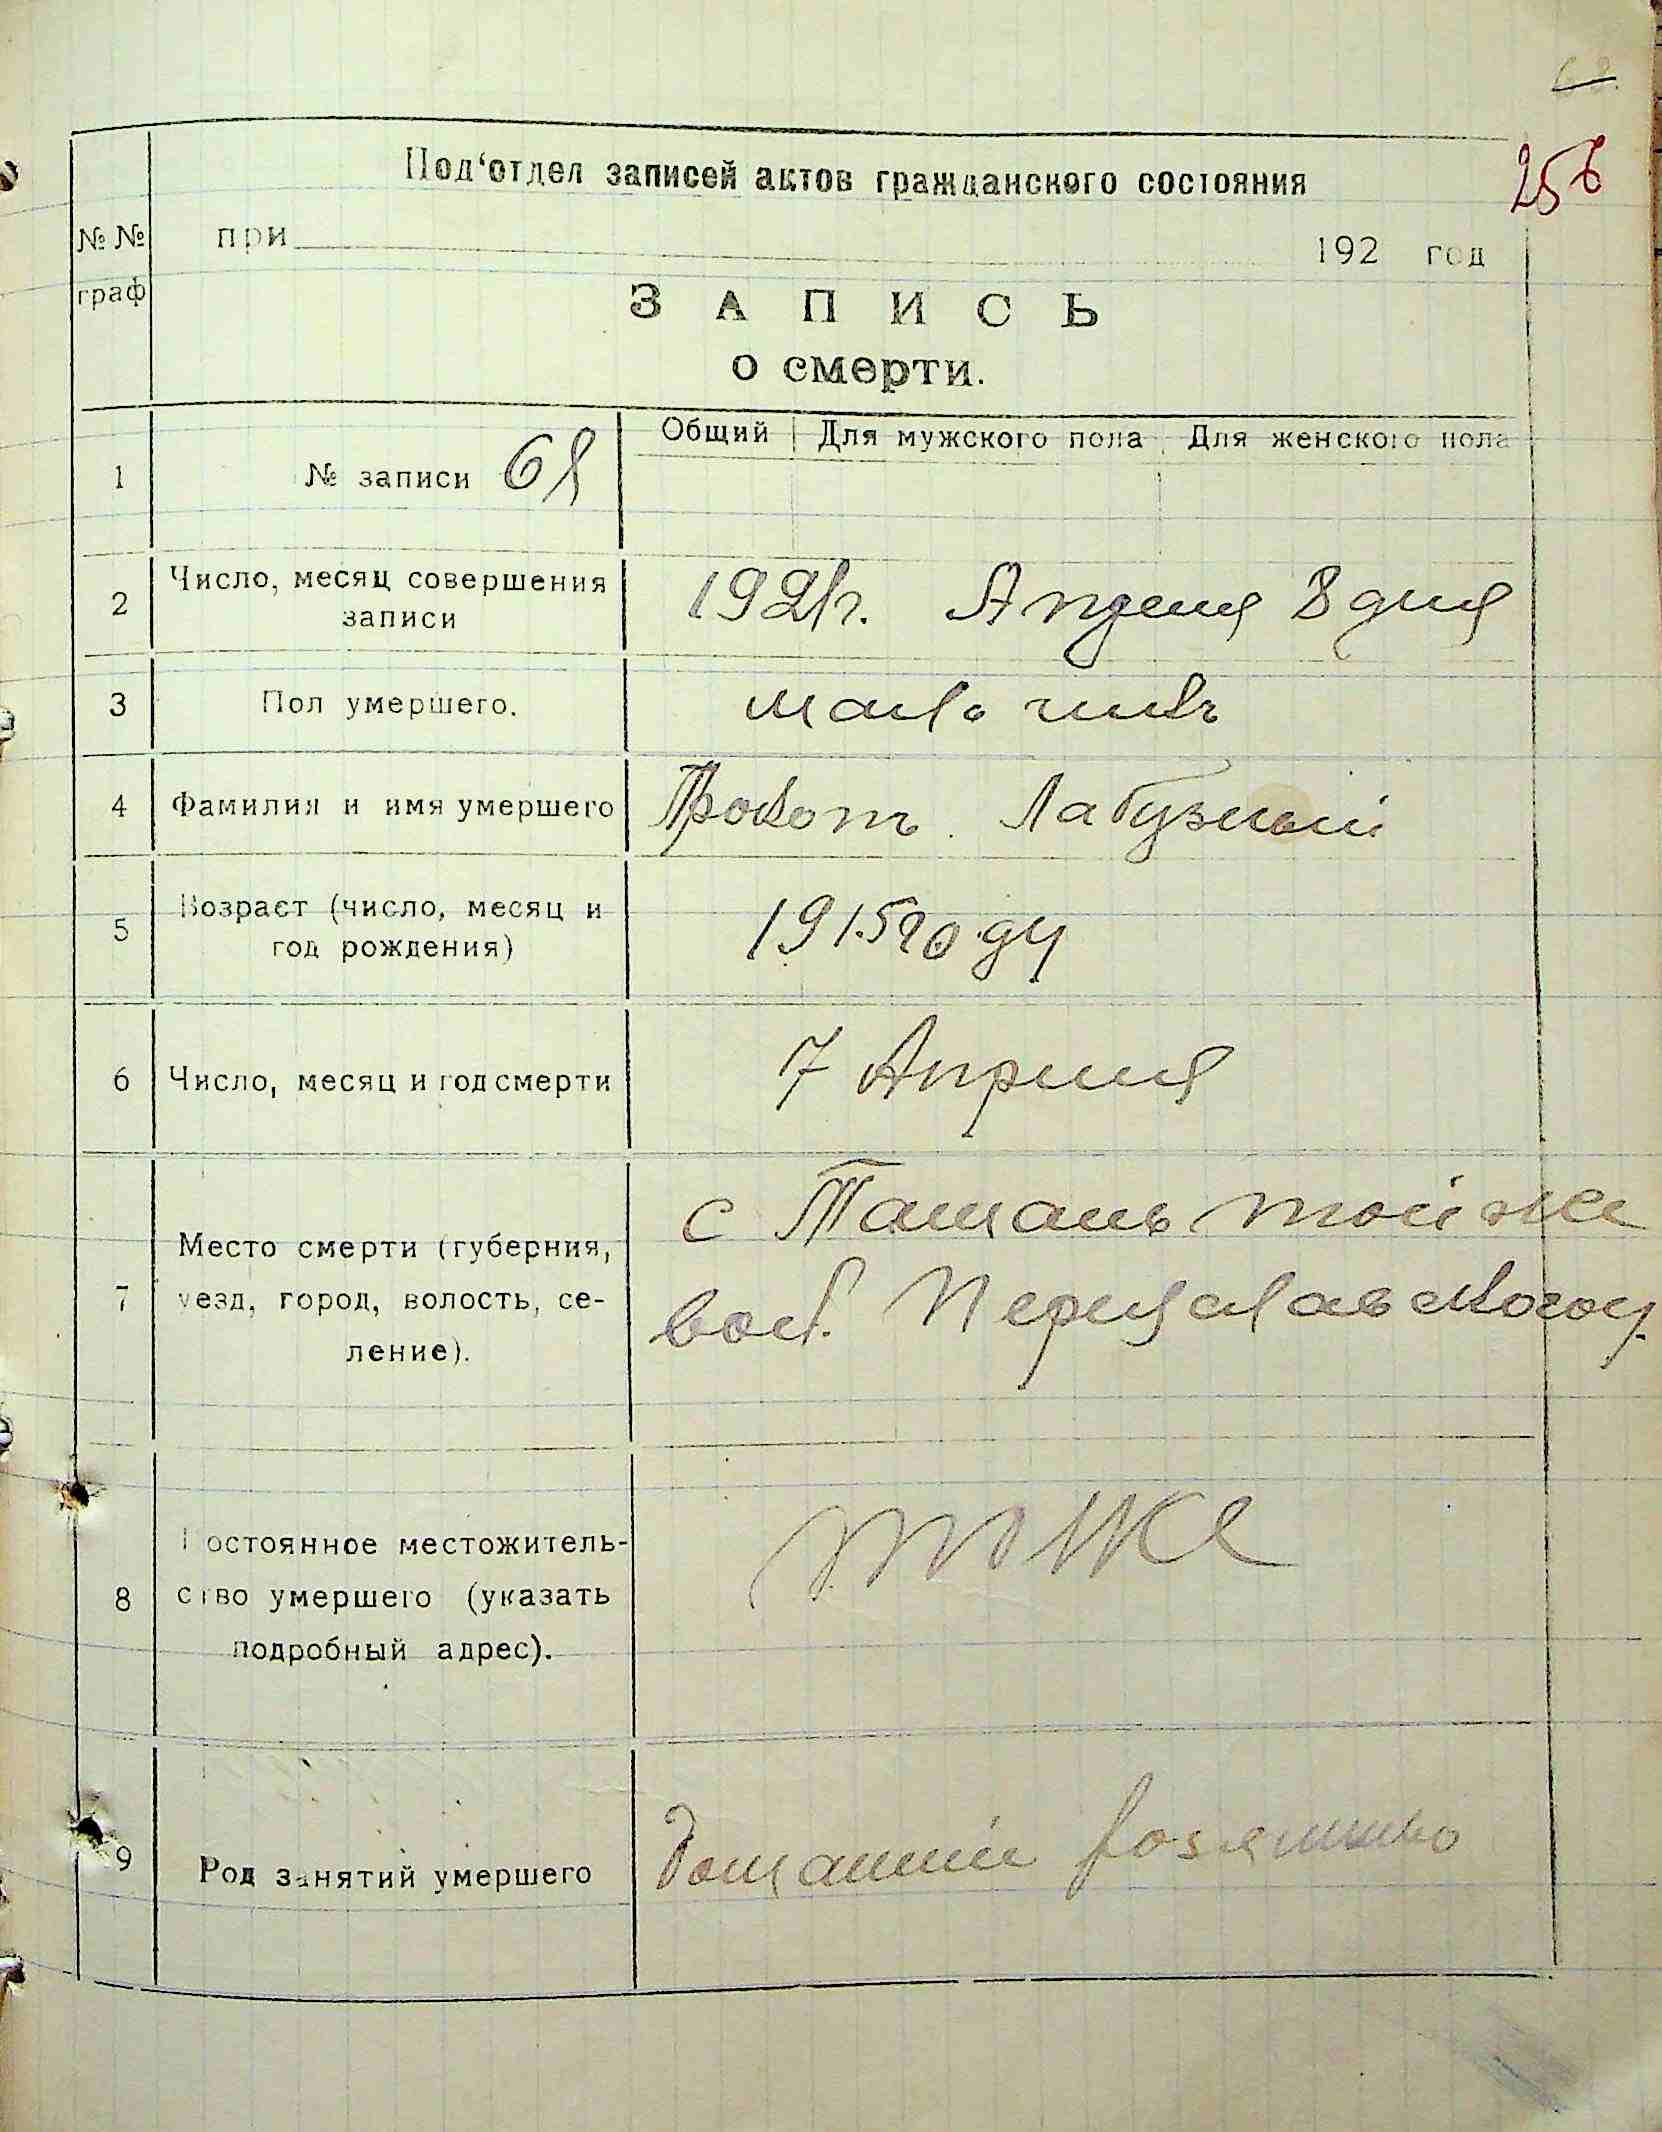 68.
Под‘отдел записей актов гражданского состояния
256
№ №
граф
при 192 год
ЗАПИСЬ
о смерти.
Общий Для мужского пола Для женского пола
1 № записи 68
2 Число, месяц совершения записи
1921г. Апреля 8 дня
3 Пол умершего.
мальчикъ
4 Фамилия и имя умершего
Прокопъ Лабузный
5 Возраст (число, месяц и
год рождения)
1915 году
6 Число, месяц и год смерти
7 Априля
7 Место смерти (губерния,
уезд, город, волость, се-
ление).
с Ташань той же
вол. Переяславского у.
8 Постоянное местожитель-
ство умершего (указать
подробный адрес).
тоже
9 Род занятий умершего